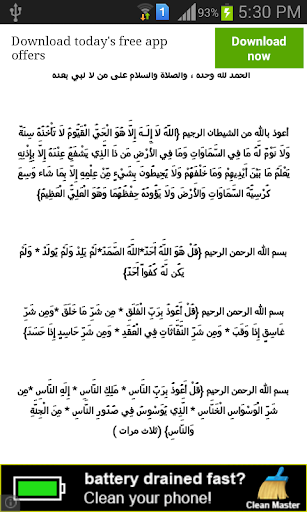 93% 5:30 PM
Download today's free app
offers
Download
now
الحمد لله وحده ، والصلاة والسلام على من لا نبي بعده
أعوذ بالله من الشيطان الرجيم {اللّهُ لاَ إِلَـهَ إِلاَّ هُوَ الْحَيُّ الْقَيُّومُ لاَ تَأْخُذُهُ سِنَةٌ
وَلاَ نَوْمٌ لَّهُ مَا فِي السَّمَاوَاتِ وَمَا فِي الأَرْضِ مَن ذَا الَّذِي يَشْفَعُ عِنْدَهُ إِلاَّ بِإِذْنِهِ
يَعْلَمُ مَا بَيْنَ أَيْدِيهِمْ وَمَا خَلْفَهُمْ وَلاَ يُحِيطُونَ بِشَيْءٍ مِّنْ عِلْمِهِ إِلاَّ بِمَا شَاء وَسِعَ
كُرْسِيُّهُ السَّمَاوَاتِ وَالأَرْضَ وَلاَ يَؤُودُهُ حِفْظُهُمَا وَهُوَ الْعَلِيُّ الْعَظِيمُ}
بسم الله الرحمن الرحيم {قُلْ هُوَ اللَّهُ أَحَدٌ*اللَّهُ الصَّمَدُ*لَمْ يَلِدْ وَلَمْ يُولَدْ * وَلَمْ
يَكُن لَّهُ كُفُواً أَحَدٌ}
بسم الله الرحمن الرحيم {قُلْ أَعُوذُ بِرَبِّ الْفَلَقِ * مِن شَرِّ مَا خَلَقَ *وَمِن شَرِّ
غَاسِقٍ إِذَا وَقَبَ * وَمِن شَرِّ النَّفَّاثَاتِ فِي الْعُقَدِ * وَمِن شَرِّ حَاسِدٍ إِذَا حَسَدَ}
بسم الله الرحمن الرحيم {قُلْ أَعُوذُ بِرَبِّ النَّاسِ * مَلِكِ النَّاسِ * إِلَهِ النَّاسِ *مِن
شَرِّ الْوَسْوَاسِ الْخَنَّاسِ * الَّذِي يُوَسْوِسُ فِي صُدُورِ النَّاسِ * مِنَ الْجِنَّةِ
وَالنَّاسِ} (ثلاث مرات )
battery drained fast?
Clean your phone!
Clean Master